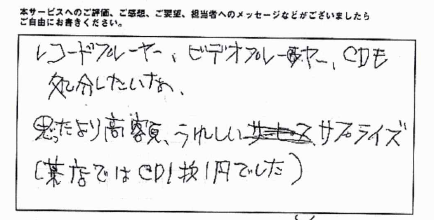 本サービスへのご評価、ご感想、ご要望、担当者へのメッセージなどがございましたら
ご自由にお書きください。
レコードプレーヤー、ビデオプレーヤー、CDも
処分したいな、
思たより高額、うれしいサプライズ
(某店ではCD1枚1円でした)